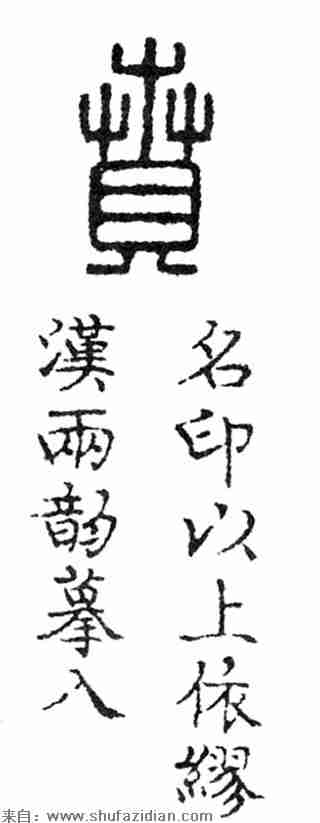 賁
名印以上依繆
漢兩韵摹入
来自：www.shufazidian.com